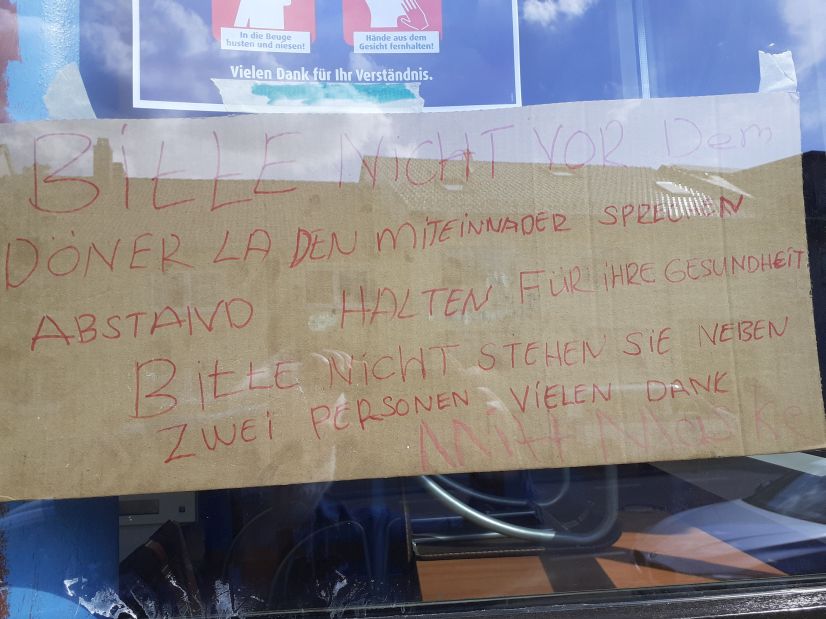 In die Beuge
husten und niesen!
Hände aus dem
Gesicht fernhalten!
Vielen Dank für Ihr Verständnis.
BITTE NICHT VOR Dem
DÖNER LA DEN MITEINNADER SPRECHEN
ABSTAND HALTEN FÜR IHRE GESUNDHEIT
BITTE NICHT STEHEN SIE NEBEN
ZWEI PERSONEN VIELEN DANK
Mitt Maske